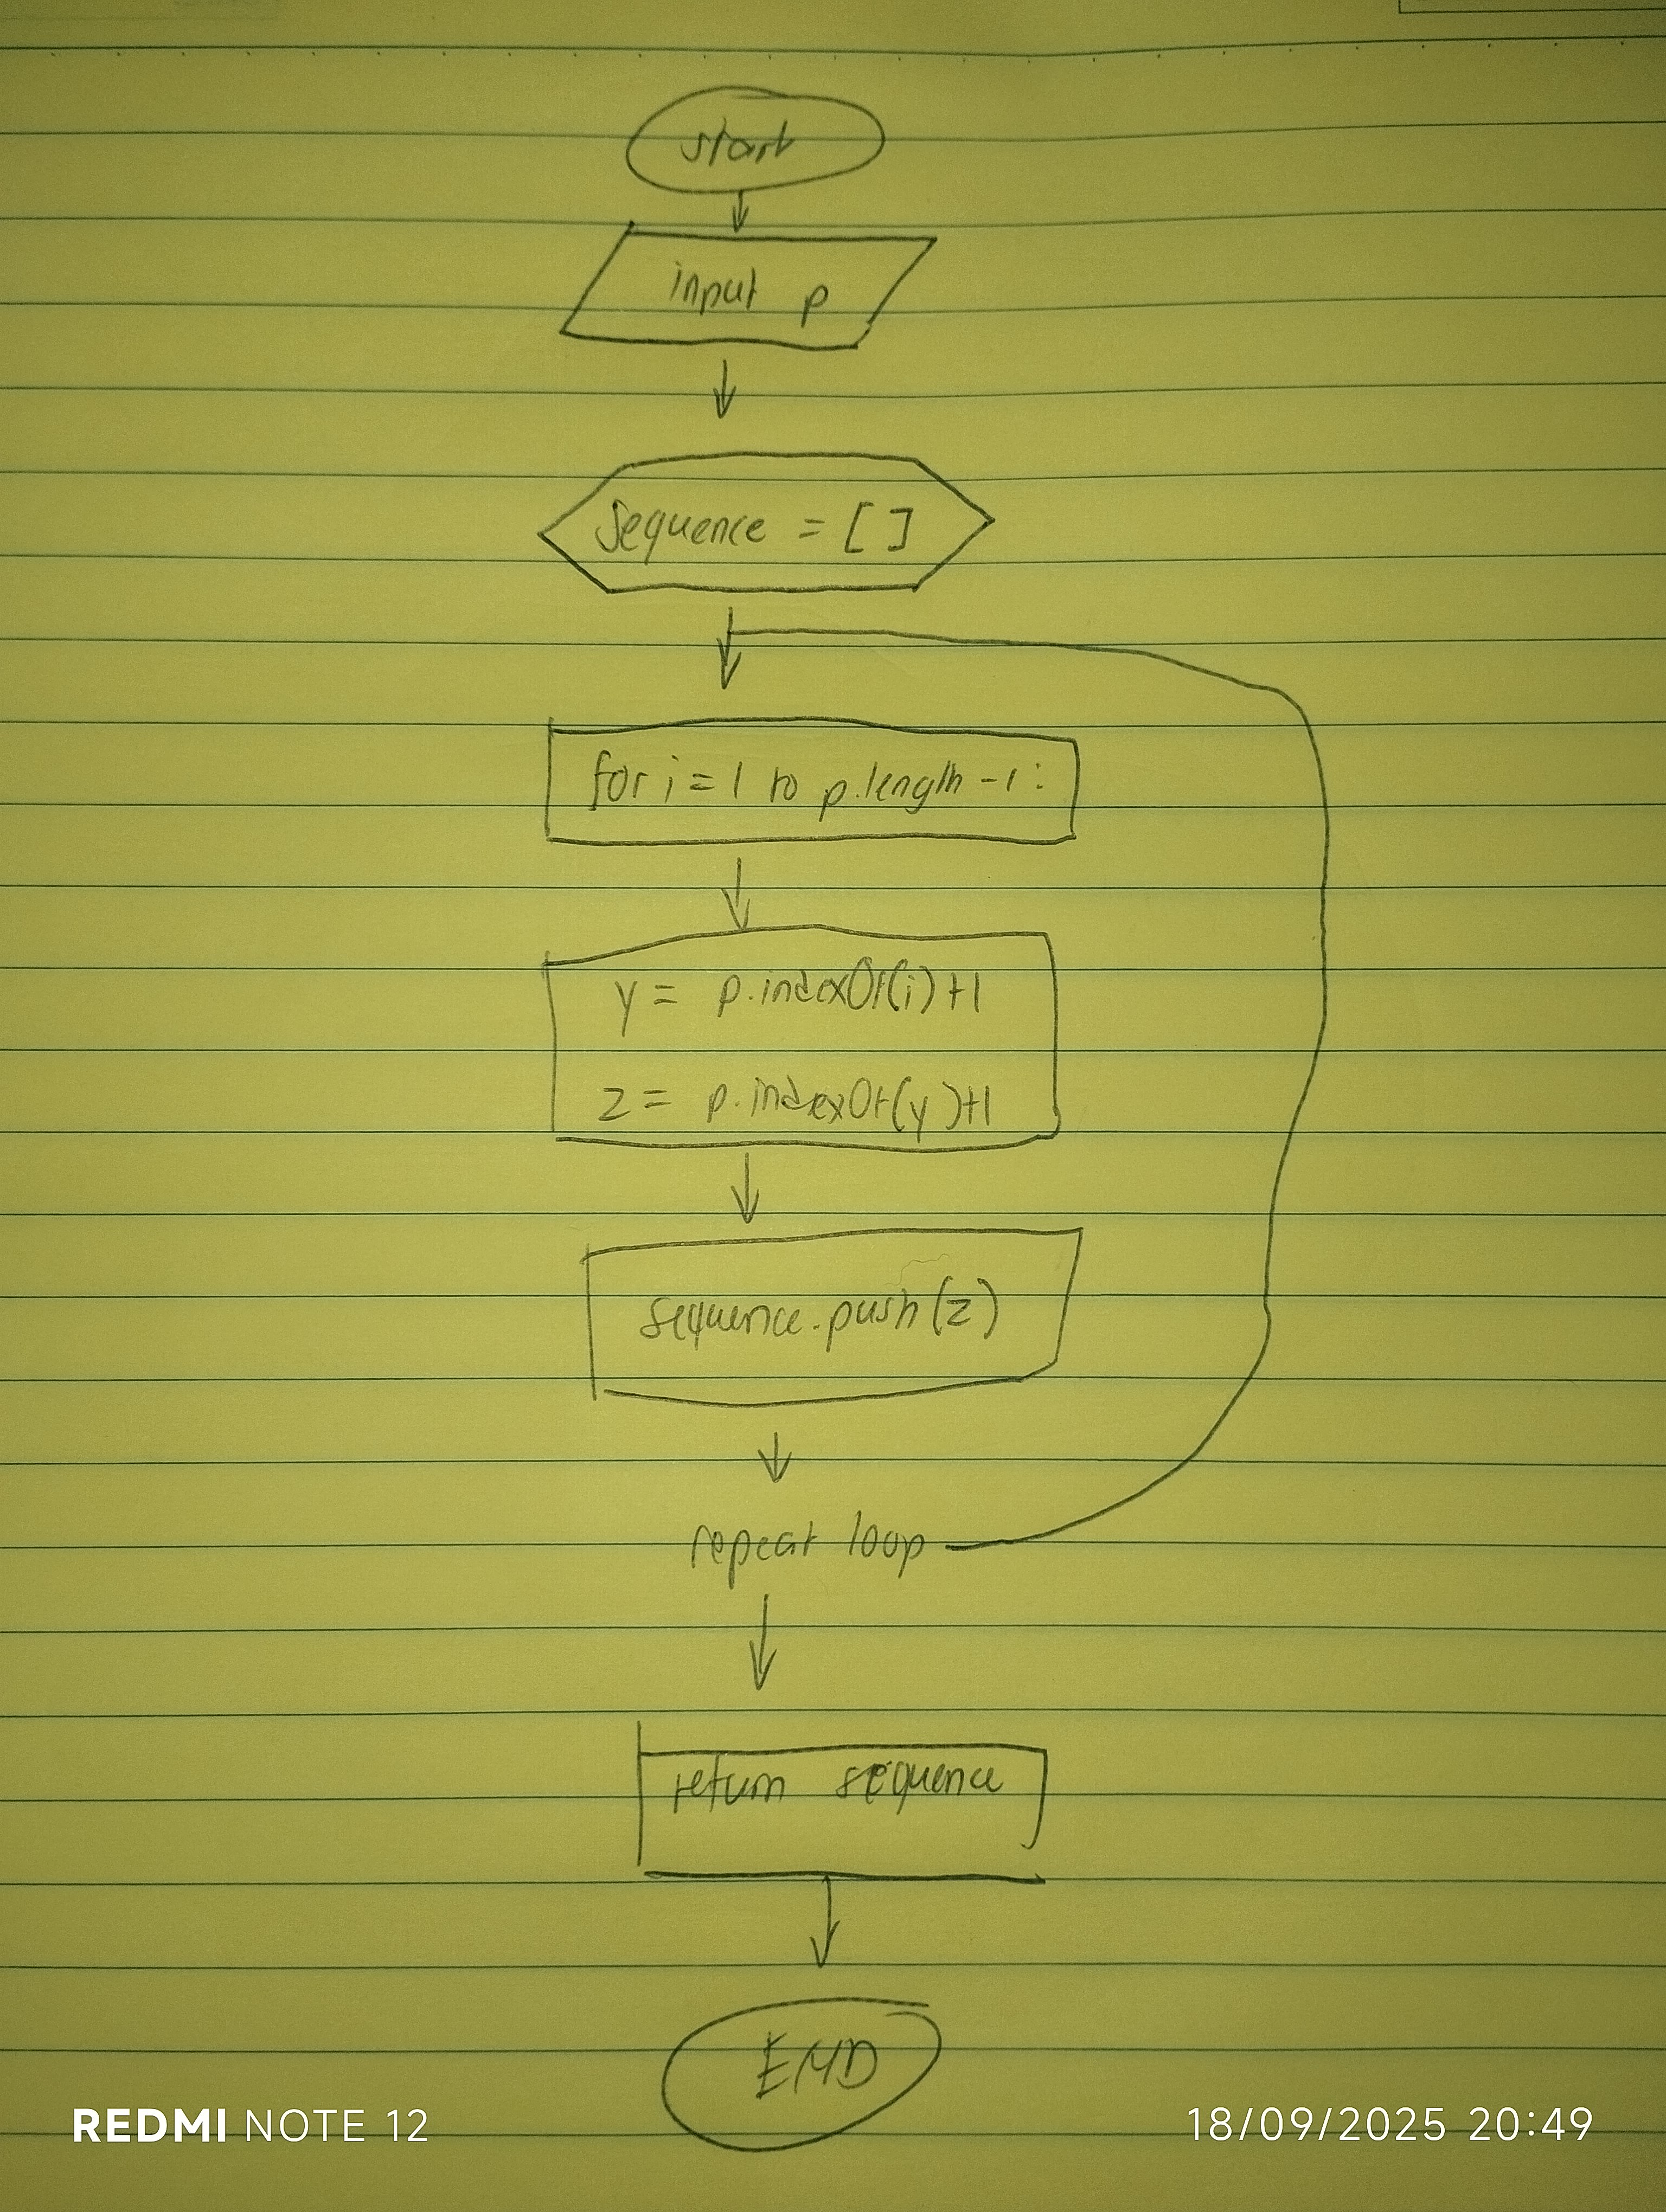 start
input p
Sequence = [ ]
for i = 1 to p.length -1 :
y = p.indexOf(i)+1
z = p.indexOf(y)+1
sequence.push(z)
repeat loop
return sequence
END
REDMI NOTE 12
18/09/2025 20:49